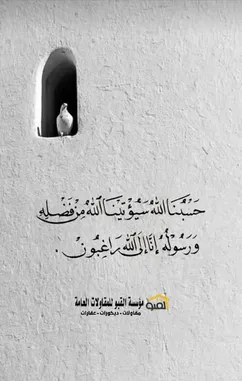 حَسْبُنَا اللهُ سَيُؤْتِينَا اللهُ مِنْ فَضْلِهِ
وَرَسُولُهُ إِنَّا إِلَى اللهِ رَاغِبُونَ .
القبو
مؤسسة القبو للمقاولات العامة
مقاولات - ديكورات - عقارات